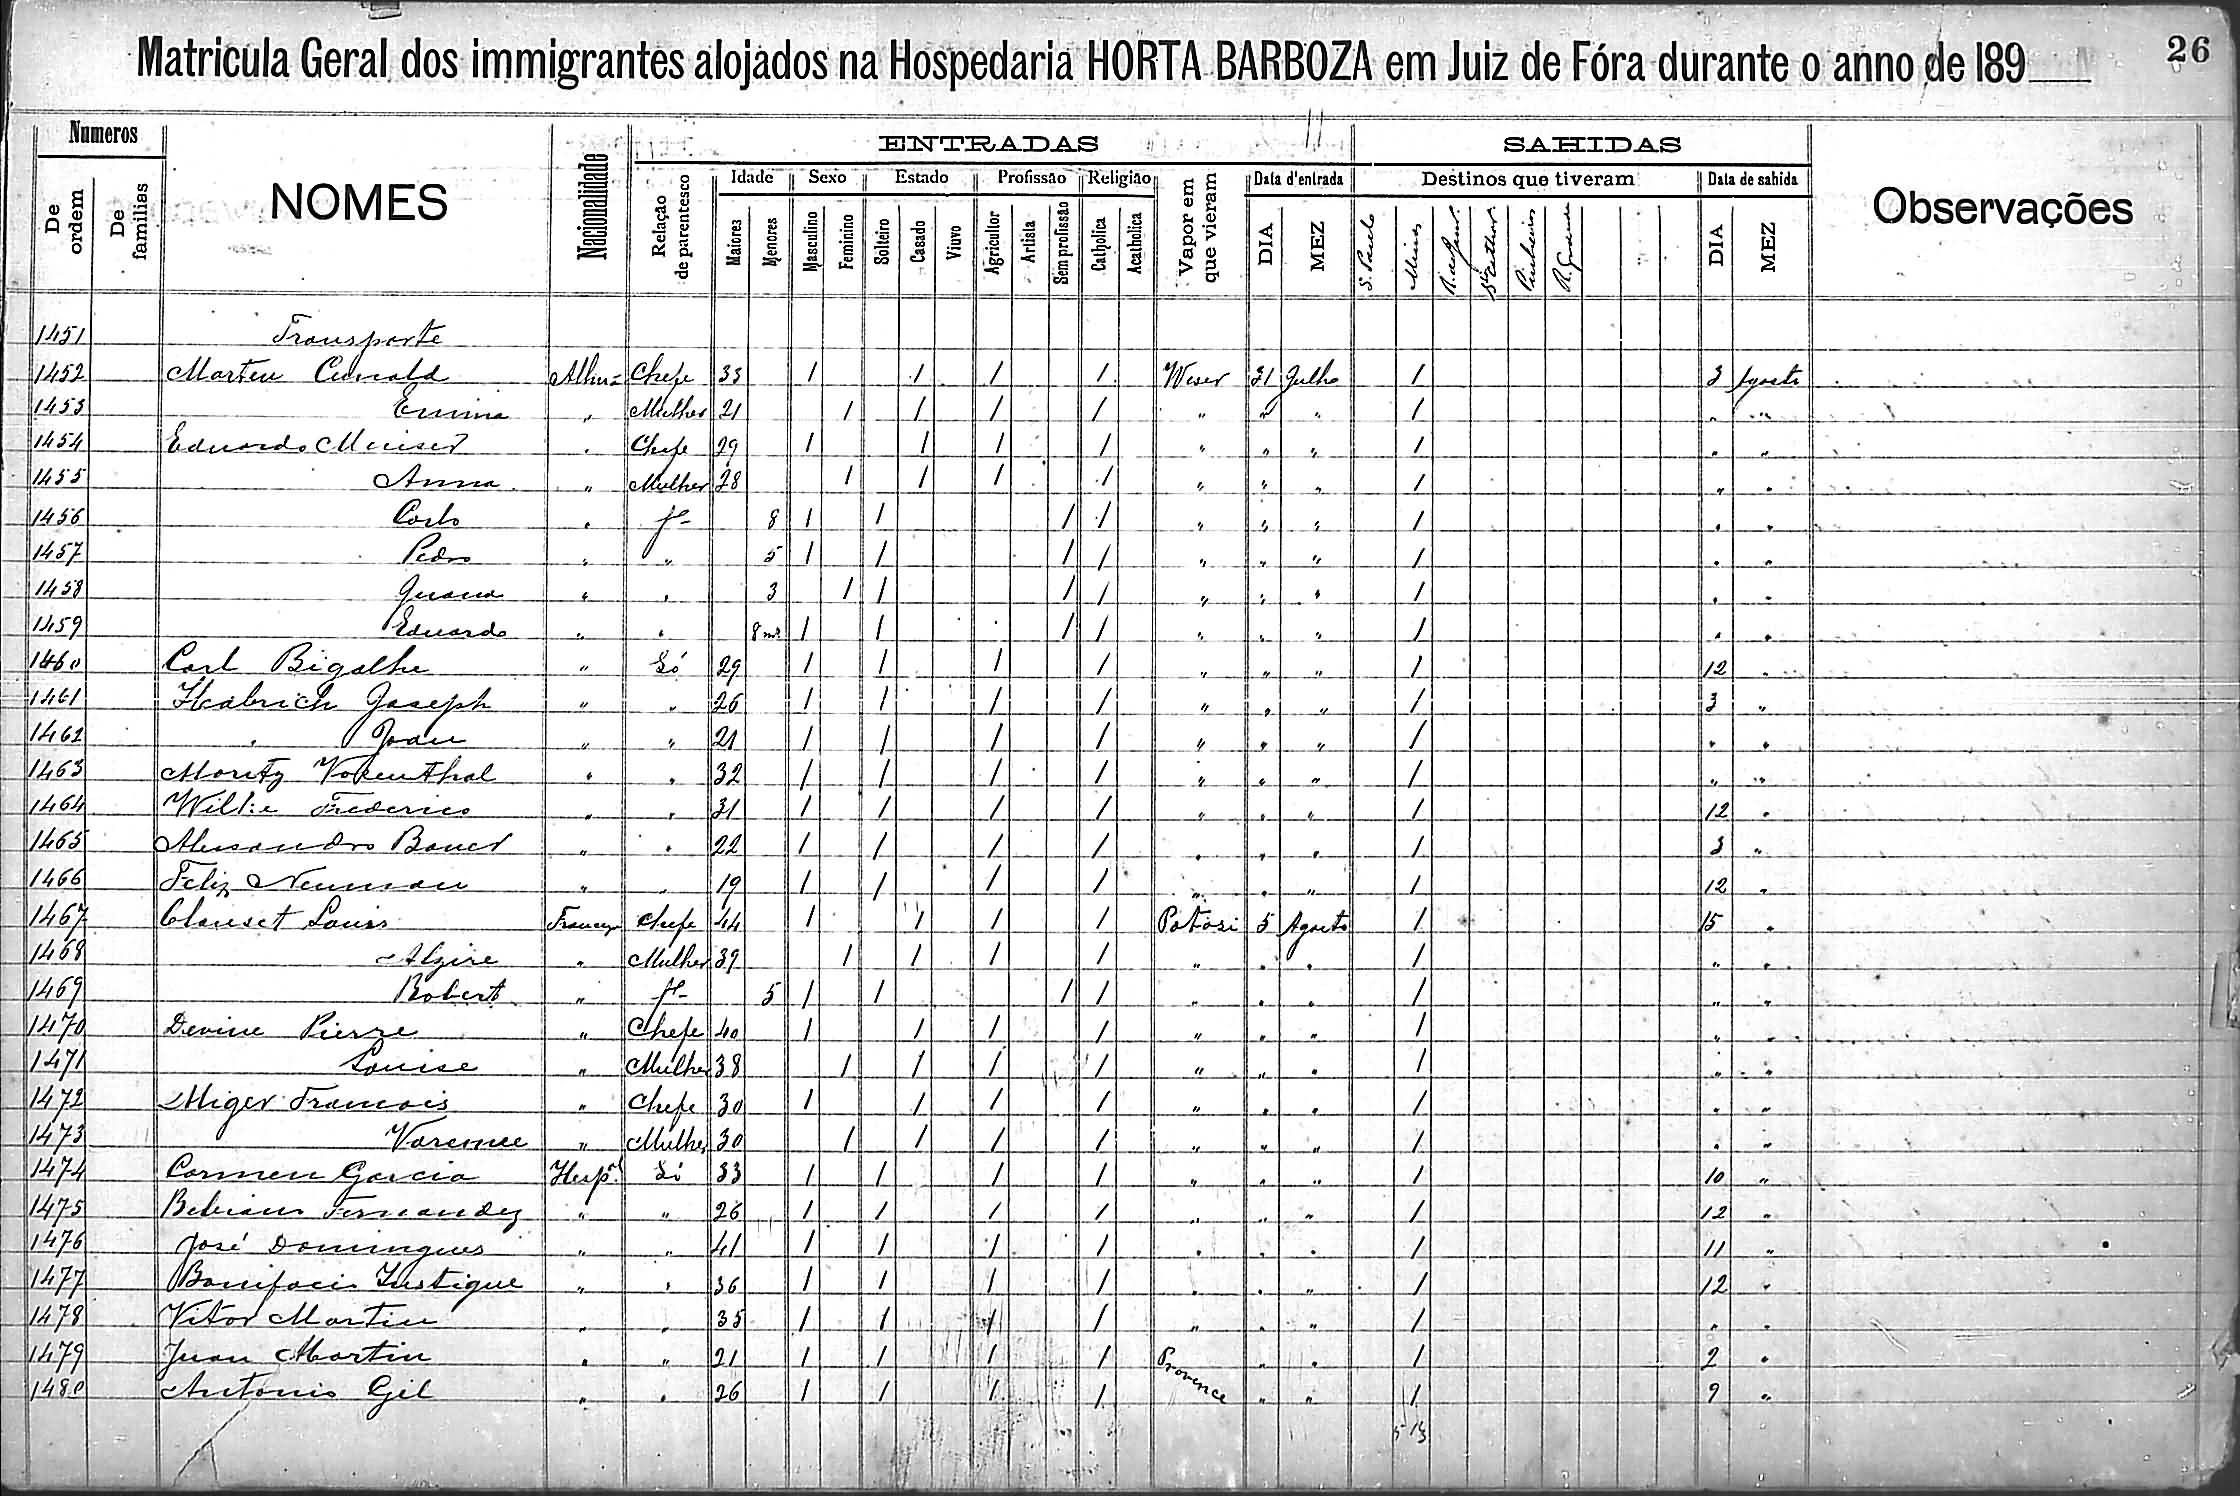 Matricula Geral dos immigrantes alojados na Hospedaria HORTA BARBOZA em Juiz de Fóra durante o anno de 189
26
Numeros
De ordem
De familias
NOMES
Nacionalidade
ENTRADAS
Relação de parentesco
Idade
Maiores
Menores
Sexo
Masculino
Feminino
Estado
Solteiro
Casado
Viuvo
Profissão
Agricultor
Artista
Sem profissão
Religião
Catholica
Acatholica
Vapor em que vieram
Data d'entrada
DIA
MEZ
SAHIDAS
Destinos que tiveram
S. Paulo
Minas
Sta Cathar.
Pinheiros
R. Grande
Data de sahida
DIA
MEZ
Observações
1451 Transporte
1452 Marten Chefe 33 1 1 1 1 Weser 31 Julho 1 3 Agosto
1453 Emma " Mulher 21 1 1 1 1 " " " 1 " "
1454 Eduardo " Chefe 29 1 1 1 1 " " " 1 " "
1455 Anna " Mulher 28 1 1 1 1 " " " 1 " "
1456 Carlo " fo 8 1 1 1 1 " " " 1 " "
1457 Pedro " " 5 1 1 1 1 " " " 1 " "
1458 " " 3 1 1 1 1 " " " 1 " "
1459 Eduardo " " 8 ms. 1 1 1 1 " " " 1 " "
1460 Carl Bigalhe " Só 29 1 1 1 1 " " " 1 12 "
1461 Habrich Joseph " " 26 1 1 1 1 " " " 1 3 "
1462 " Joau " " 21 1 1 1 1 " " " 1 " "
1463 Moritz " " 32 1 1 1 1 " " " 1 " "
1464 Wilke Frederico " " 31 1 1 1 1 " " " 1 12 "
1465 Alessandro Bauer " " 22 1 1 1 1 " " " 1 3 "
1466 Feliz Neuman " " 19 1 1 1 1 " " " 1 12 "
1467 Clauset Louis Francez Chefe 44 1 1 1 1 Potosi 5 Agosto 1 15 "
1468 Alzire " Mulher 39 1 1 1 1 " " " 1 " "
1469 Robert " fo 5 1 1 1 1 " " " 1 " "
1470 Devine Pierre " Chefe 40 1 1 1 1 " " " 1 " "
1471 Louise " Mulher 38 1 1 1 1 " " " 1 " "
1472 Miger Francois " Chefe 30 1 1 1 1 " " " 1 " "
1473 " Mulher 30 1 1 1 1 " " " 1 " "
1474 Carmen Garcia Hesp.l Só 33 1 1 1 1 " " " 1 10 "
1475 Bebiano Fernandez " " 26 1 1 1 1 " " " 1 12 "
1476 José Domingues " " 41 1 1 1 1 " " " 1 11 "
1477 Bonifacio " " 36 1 1 1 1 " " " 1 12 "
1478 Vitor Martin " " 35 1 1 1 1 " " " 1 " "
1479 Juan Martin " " 21 1 1 1 1 Provence " " 1 2 "
1480 Antonio Gil " " 26 1 1 1 1 " " 1 9 "